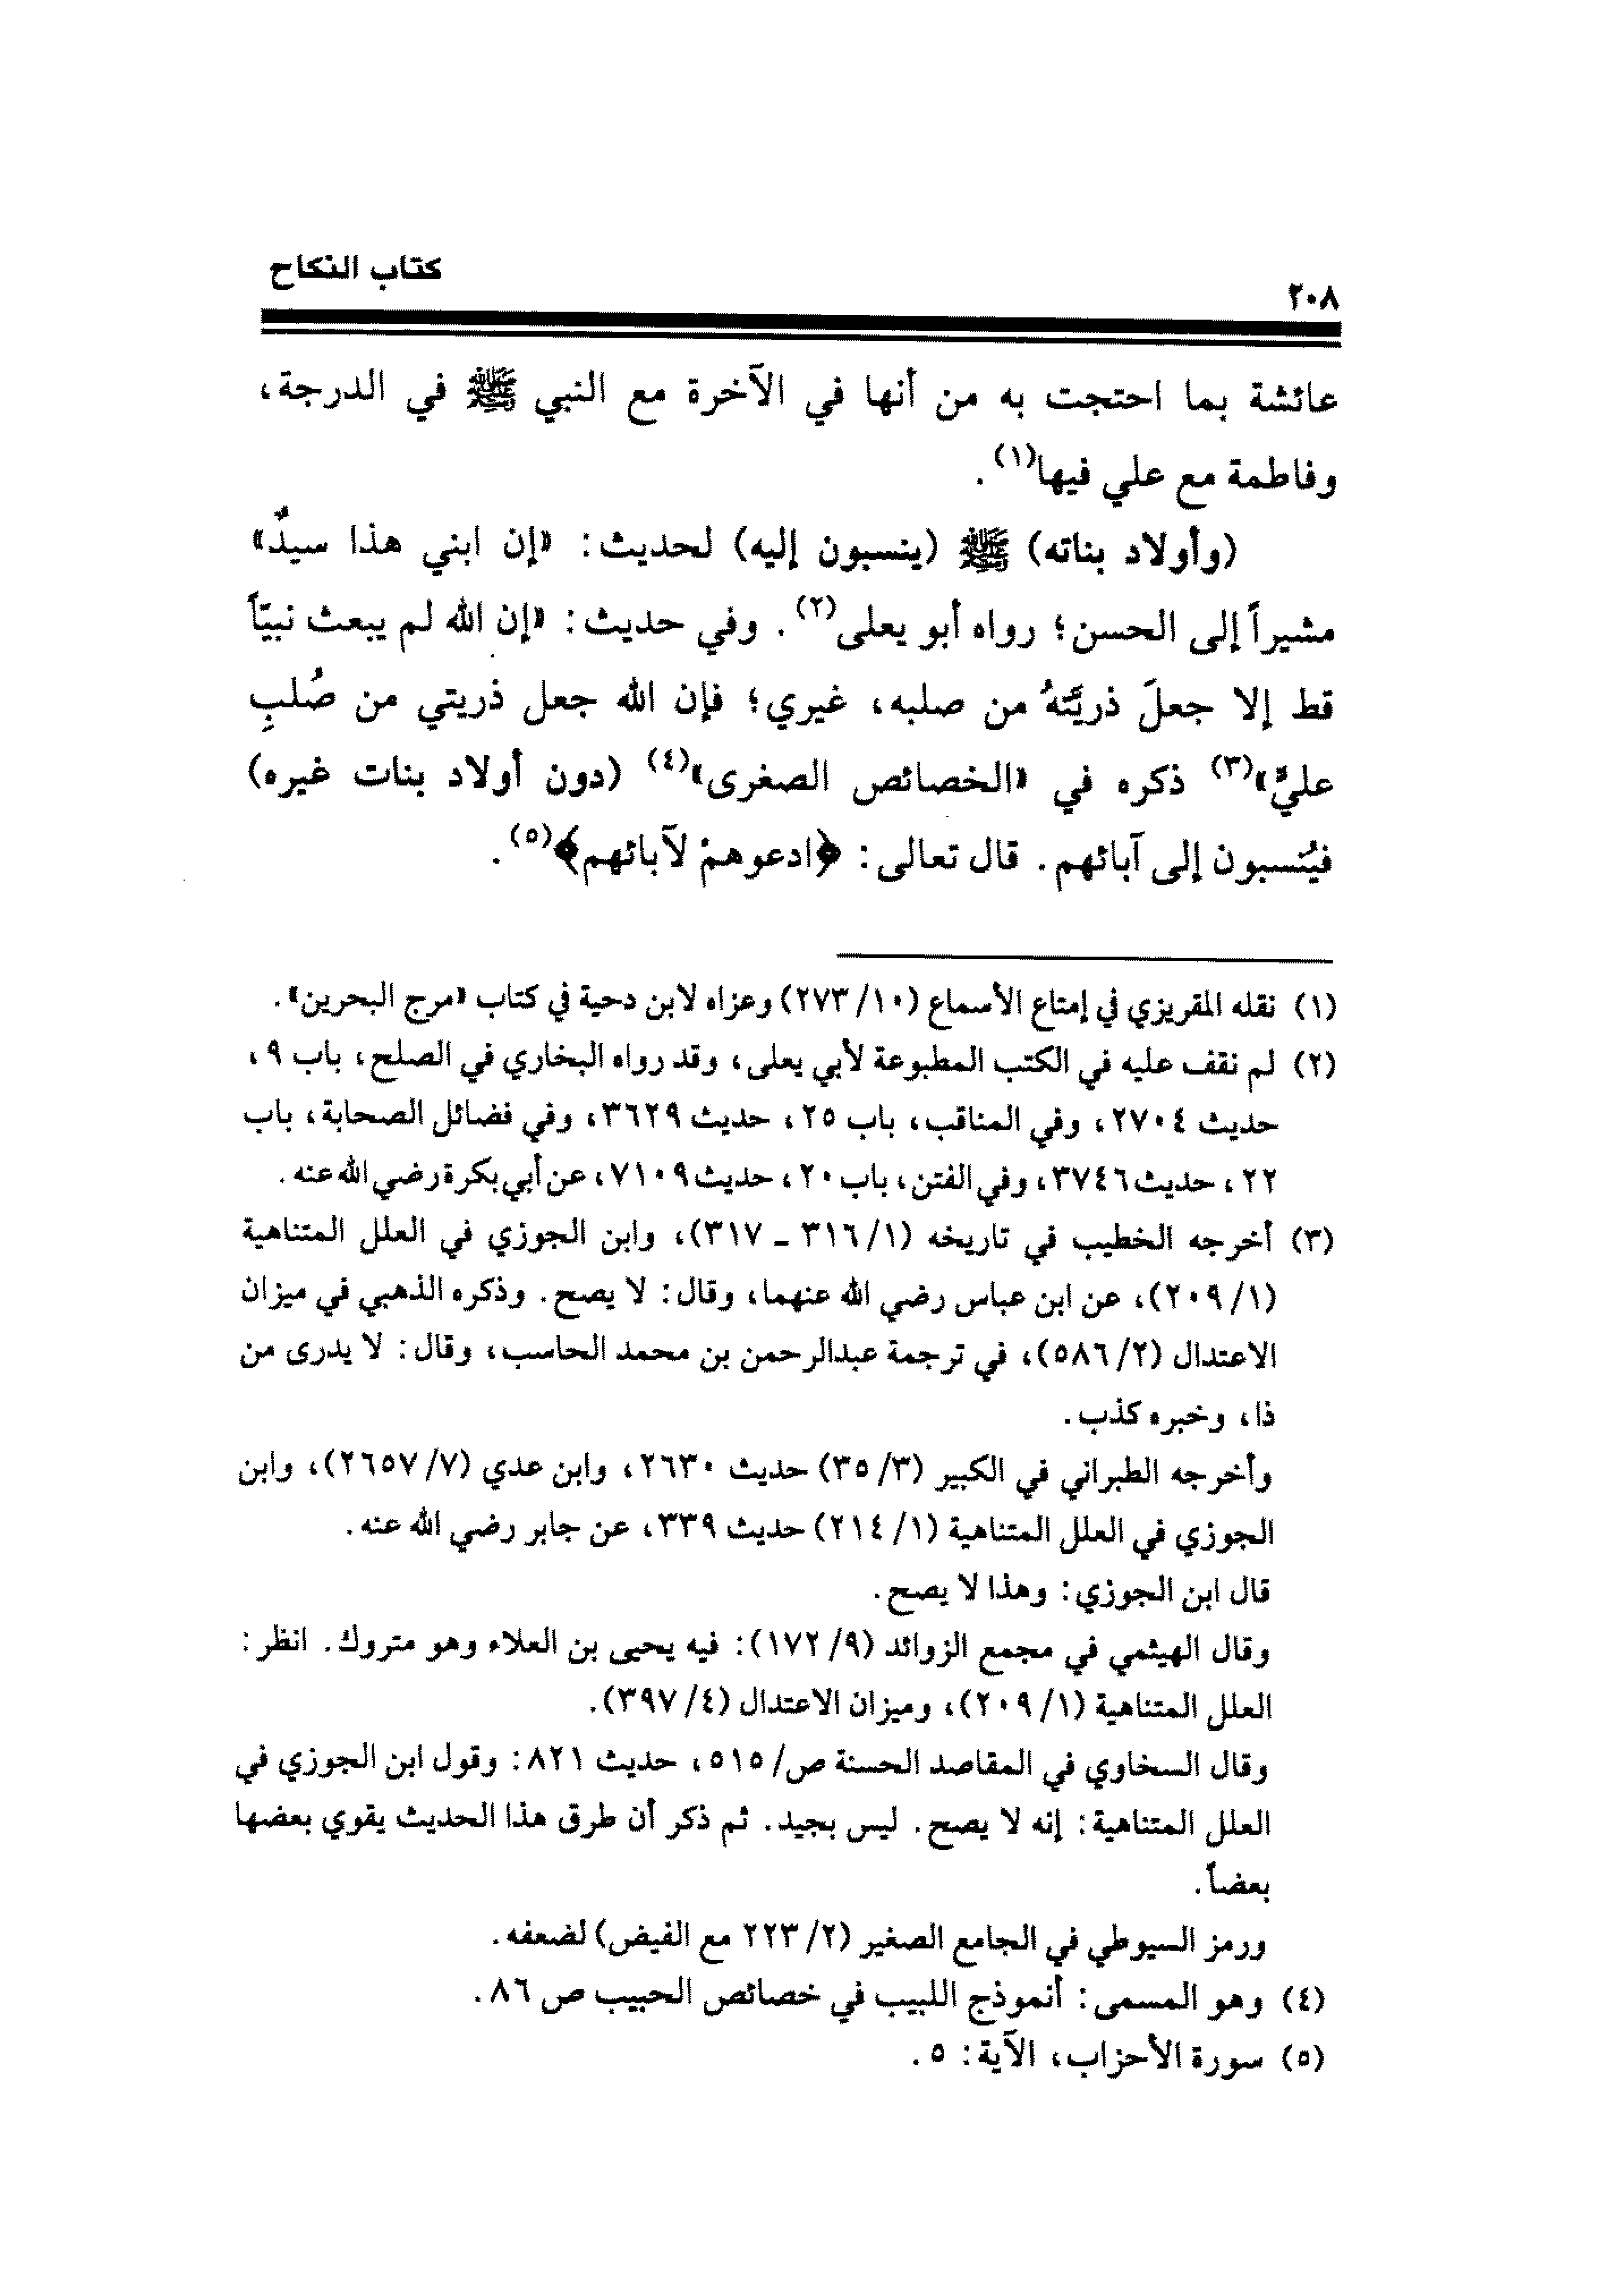 ٢٠٨
كتاب النكاح
عائشة بما احتجت به من أنها في الآخرة مع النبي ﷺ في الدرجة،
وفاطمة مع علي فيها(١).
(وأولاد بناته) ﷺ (ينسبون إليه) لحديث: «إن ابني هذا سيدٌ»
مشيراً إلى الحسن؛ رواه أبو يعلى(٢). وفي حديث: «إن الله لم يبعث نبيّاً
قط إلا جعلَ ذريَّتهُ من صلبه، غيري؛ فإن الله جعل ذريتي من صُلبِ
عليٍّ»(٣) ذكره في «الخصائص الصغرى»(٤) (دون أولاد بنات غيره)
فيُنسبون إلى آبائهم. قال تعالى: ﴿ادعوهمْ لآبائهم﴾(٥).
(١) نقله المقريزي في إمتاع الأسماع (١٠/ ٢٧٣) وعزاه لابن دحية في كتاب «مرج البحرين».
(٢) لم نقف عليه في الكتب المطبوعة لأبي يعلى، وقد رواه البخاري في الصلح، باب ٩،
حديث ٢٧٠٤، وفي المناقب، باب ٢٥، حديث ٣٦٢٩، وفي فضائل الصحابة، باب
٢٢، حديث ٣٧٤٦، وفي الفتن، باب ٢٠، حديث ٧١٠٩، عن أبي بكرة رضي الله عنه.
(٣) أخرجه الخطيب في تاريخه (١/ ٣١٦ ـ ٣١٧)، وابن الجوزي في العلل المتناهية
(١/ ٢٠٩)، عن ابن عباس رضي الله عنهما، وقال: لا يصح. وذكره الذهبي في ميزان
الاعتدال (٢/ ٥٨٦)، في ترجمة عبدالرحمن بن محمد الحاسب، وقال: لا يدرى من
ذا، وخبره كذب.
وأخرجه الطبراني في الكبير (٣/ ٣٥) حديث ٢٦٣٠، وابن عدي (٧/ ٢٦٥٧)، وابن
الجوزي في العلل المتناهية (١/ ٢١٤) حديث ٣٣٩، عن جابر رضي الله عنه.
قال ابن الجوزي: وهذا لا يصح.
وقال الهيثمي في مجمع الزوائد (٩/ ١٧٢): فيه يحيى بن العلاء وهو متروك. انظر:
العلل المتناهية (١/ ٢٠٩)، وميزان الاعتدال (٤/ ٣٩٧).
وقال السخاوي في المقاصد الحسنة ص/ ٥١٥، حديث ٨٢١: وقول ابن الجوزي في
العلل المتناهية: إنه لا يصح. ليس بجيد. ثم ذكر أن طرق هذا الحديث يقوي بعضها
بعضاً.
ورمز السيوطي في الجامع الصغير (٢/ ٢٢٣ مع الفيض) لضعفه.
(٤) وهو المسمى: أنموذج اللبيب في خصائص الحبيب ص ٨٦.
(٥) سورة الأحزاب، الآية: ٥.